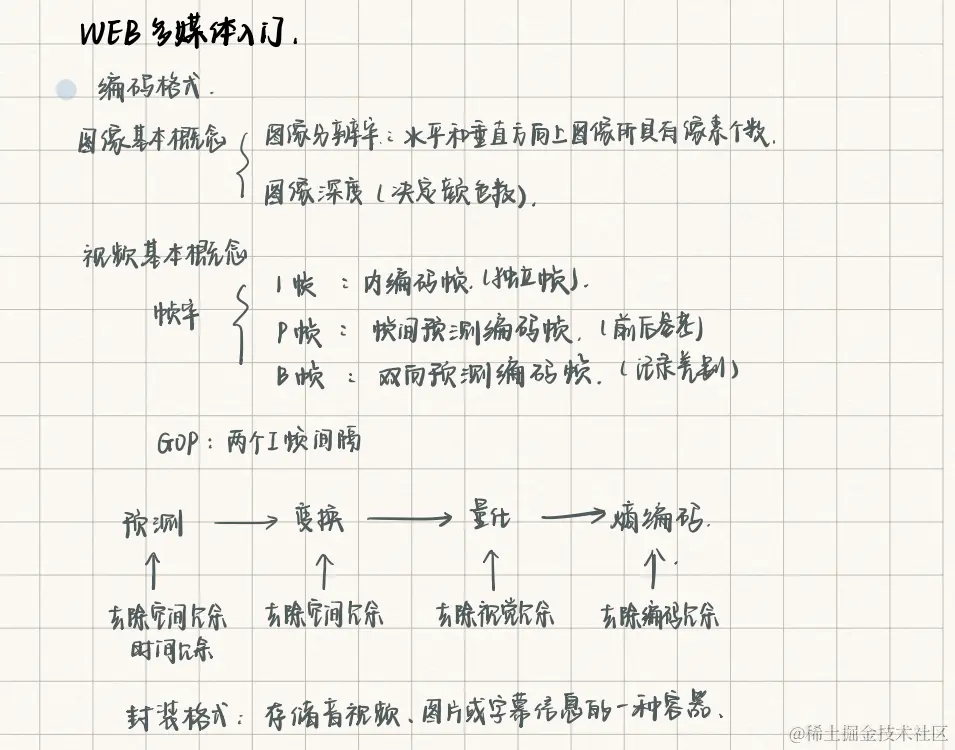 WEB 多媒体入门.
编码格式.
图像基本概念
图像分辨率：水平和垂直方向上图像所具有像素个数.
图像深度（决定颜色数）.
视频基本概念
帧率
I 帧 ：内编码帧.（独立帧）.
P 帧 ：帧间预测编码帧.（前后参差）
B 帧 ：双向预测编码帧.（记录差别）
GOP：两个I帧间隔
预测 → 变换 → 量化 → 熵编码.
去除空间冗余 去除空间冗余 去除视觉冗余 去除编码冗余
时间冗余
封装格式：存储音视频、图片或字幕信息的一种容器.
@稀土掘金技术社区